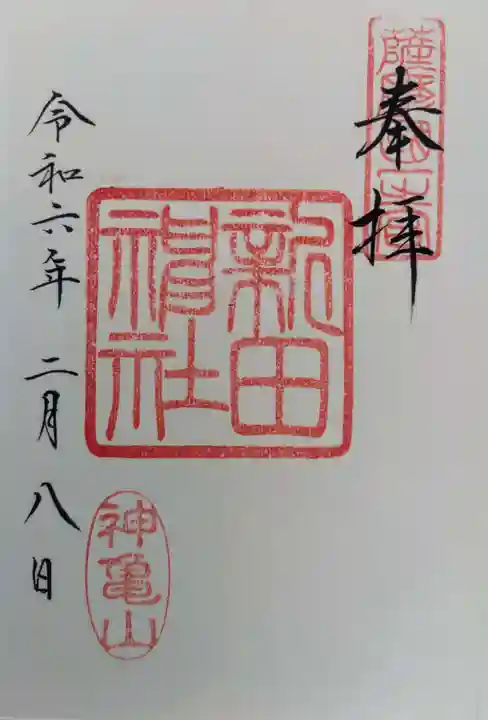 薩摩國一宮
奉拝
新田
神社
神亀山
令和六年 二月 八日